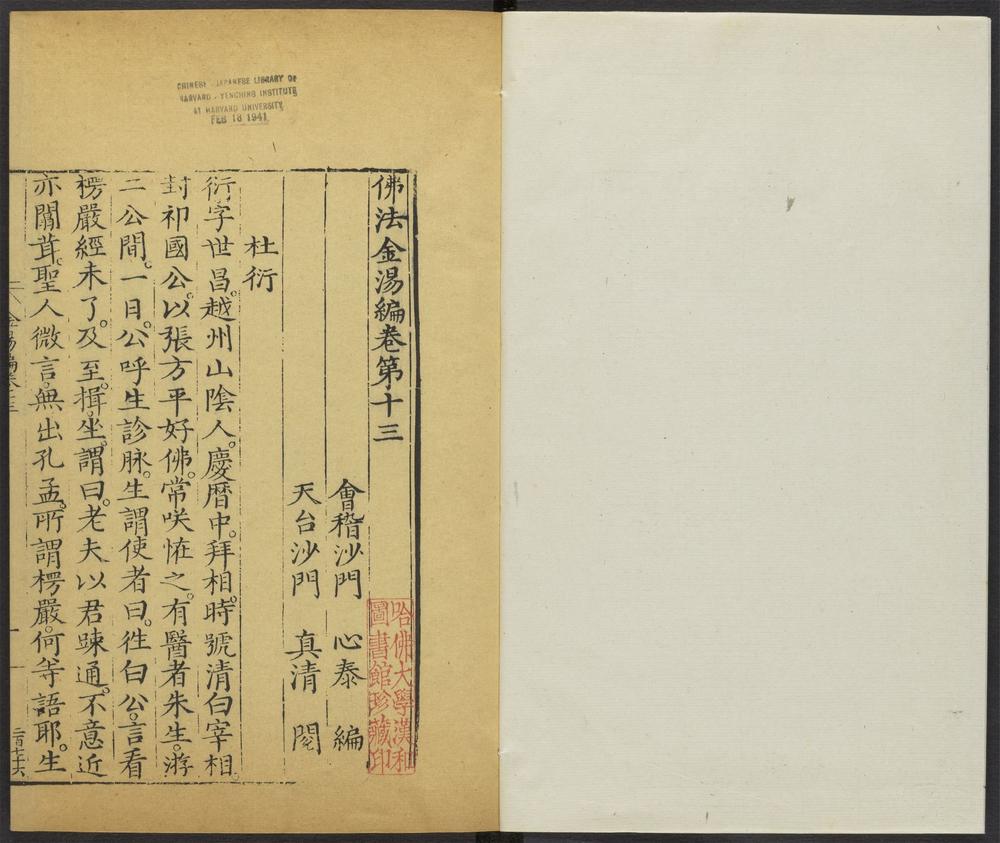 CHINESE - JAPANESE LIBRARY OF
HARVARD - YENCHING INSTITUTE
AT HARVARD UNIVERSITY
FEB 18 1941
佛法金湯編卷第十三
會稽沙門　心泰　編
天台沙門　真清　閱
杜衍
衍字世昌。越州山陰人。慶曆中。拜相。時號清白宰相。
封祁國公。以張方平好佛。常咲恠之。有醫者朱生。游
二公間。一日。公呼生診脉。生謂使者曰。徃白公。言看
楞嚴經未了。及至。揖坐。謂曰。老夫以君踈通。不意近
亦闒茸。聖人微言。無出孔孟。所謂楞嚴。何等語耶。生
二百七十六
哈佛大學漢和
圖書館珍藏印